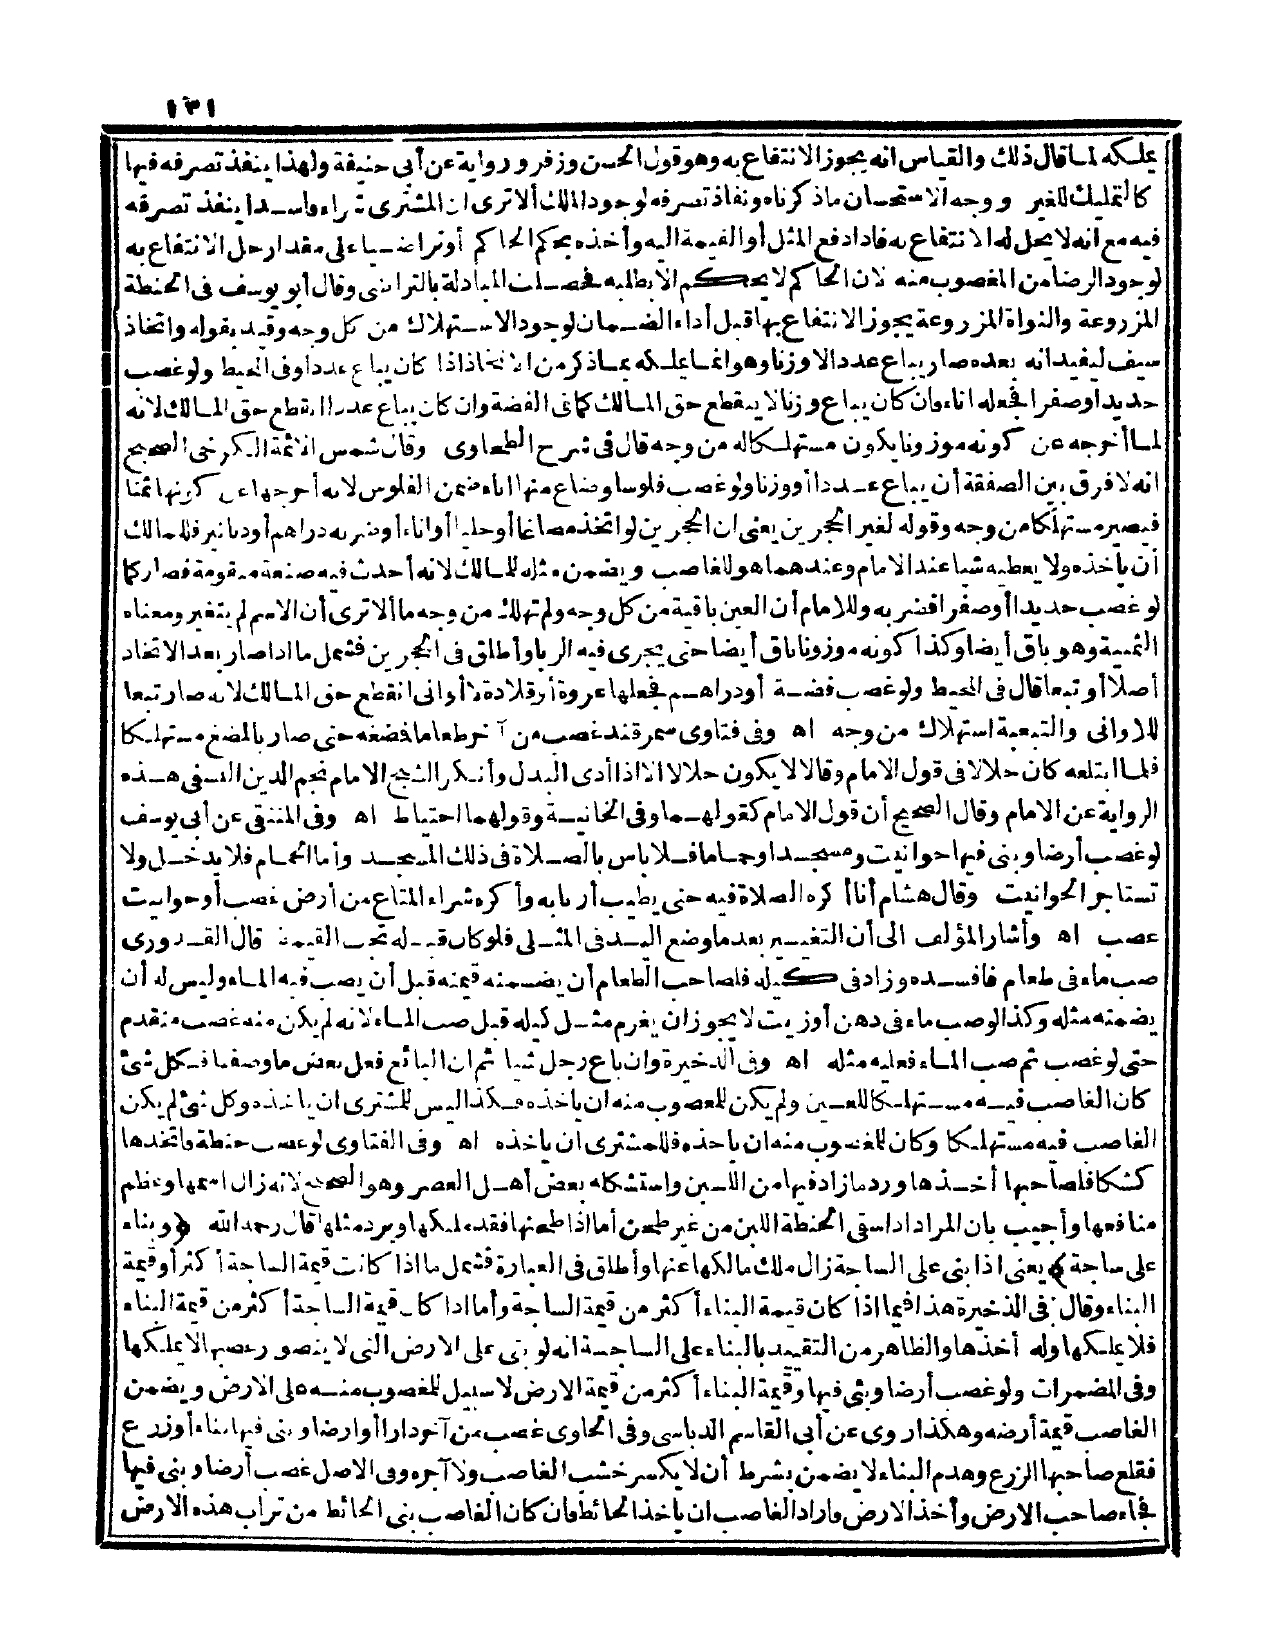 ١٣١
يملكه لما قال ذلك والقياس انه يجوز الانتفاع به وهو قول الحسن وزفر ورواية عن أبى حنيفة ولهذا ينفذ تصرفه فيها
كالتمليك للغير ووجه الاستحسان ماذكرناه ونفاذ تصرفه لوجود الملك ألاترى ان المشترى شراء فاسدا ينفذ تصرفه
فيه مع انه لا يحل له الانتفاع به فاذا دفع المثل أو القيمة اليه وأخذه بحكم الحاكم أو تراضيا على مقدار حل الانتفاع به
لوجود الرضا من المغصوب منه لان الحاكم لا يحكم الا بطلبه فحصلت المبادلة بالتراضى وقال أبو يوسف فى الحنطة
المزروعة والنواة المزروعة يجوز الانتفاع بها قبل أداء الضمان لوجود الاستهلاك من كل وجه وقيد بقوله واتخاذ
سيف ليفيد انه بعده صار يباع عددا لا وزنا وهو انما يملكه بماذكر من الاتخاذ اذا كان يباع عددا وفى المحيط ولو غصب
حديدا أو صفرا فجعله اناء وان كان يباع وزنا لا ينقطع حق المالك كما فى الفضة وان كان يباع عددا انقطع حق المالك لانه
لما أخرجه عن كونه موزونا يكون مستهلكا له من وجه قال فى شرح الطحاوى وقال شمس الائمة الكرخى الصحيح
انه لا فرق بين الصفقة أن يباع عددا أو وزنا ولو غصب فلوسا وصاغ منها اناء ضمن الفلوس لانه أخرجها عن كونها ثمنا
فيصير مستهلكا من وجه وقوله لغير الحجرين يعنى ان الحجرين لو اتخذه مصاغا أو حليا أو اناء أو ضربه دراهم أو دنانير فللمالك
أن يأخذه ولا يعطيه شيا عند الامام وعندهما هو للغاصب ويضمن مثله للمالك لانه أحدث فيه صنعة متقومة فصار كما
لو غصب حديدا أو صفرا فضربه وللامام أن العين باقية من كل وجه ولم تهلك من وجه ما ألاترى أن الاسم لم يتغير ومعناه
الثمنية وهو باق أيضا وكذا كونه موزونا باق أيضا حتى يجرى فيه الربا وأطلق فى الحجرين فشمل ما اذا صار بعد الاتخاذ
أصلا أو تبعا قال فى المحيط ولو غصب فضة أو دراهم فجعلها عروة أو قلادة لاوانى انقطع حق المالك لانه صار تبعا
للاوانى والتبعية استهلاك من وجه اه وفى فتاوى سمرقند غصب من آخر طعاما فمضغه حتى صار بالمضغ مستهلكا
فلما ابتلعه كان حلالا فى قول الامام وقالا لا يكون حلالا الا اذا أدى البدل وأنكر الشيخ الامام نجم الدين النسفى هذه
الرواية عن الامام وقال الصحيح أن قول الامام كقولهما وفى الخانية وقولهما احتياط اه وفى المنتقى عن أبى يوسف
لو غصب أرضا وبنى فيها حوانيت ومسجدا وحماما فلا باس بالصلاة فى ذلك المسجد وأما الحمام فلا يدخل ولا
تستاجر الحوانيت وقال هشام أنا أكره الصلاة فيه حتى يطيب أربابه وأكره شراء المتاع من أرض غصب أو حوانيت
غصب اه وأشار المؤلف الى أن التغيير بعد ما وضع اليد فى المثلى فلو كان قبله تجب القيمة قال القدورى
صب ماء فى طعام فافسده وزاد فى كيله فلصاحب الطعام أن يضمنه قيمته قبل أن يصب فيه الماء وليس له أن
يضمنه مثله وكذا لو صب ماء فى دهن أو زيت لا يجوز ان يغرم مثل كيله قبل صب الماء لانه لم يكن منه غصب متقدم
حتى لو غصب ثم صب الماء فعليه مثله اه وفى الذخيرة وان باع رجل شيا ثم ان البائع فعل بعض ما وصفنا فكل شئ
كان الغاصب فيه مستهلكا للعين ولم يكن للمغصوب منه ان ياخذه فكذا ليس للمشترى ان ياخذه وكل شئ لم يكن
الغاصب فيه مستهلكا وكان للمغصوب منه ان ياخذه فللمشترى ان ياخذه اه وفى الفتاوى لو غصب حنطة فاتخذها
كشكا فلصاحبها أخذها ورد ما زاد فيها من اللبن واستشكله بعض أهل العصر وهو الصحيح لانه زال اسمها وعظم
منافعها وأجيب بان المراد اذا سقى الحنطة اللبن من غير طحن أما اذا طحنها فقد ملكها ويرد مثلها قال رحمه الله ﴿وبناء
على ساجة﴾ يعنى اذا بنى على الساجة زال ملك مالكها عنها وأطلق فى العبارة فشمل ما اذا كانت قيمة الساجة أكثر أو قيمة
البناء وقال فى الذخيرة هذا فيما اذا كان قيمة البناء أكثر من قيمة الساجة وأما اذا كانت قيمة الساجة أكثر من قيمة البناء
فلا يملكها وله أخذها والظاهر من التقييد بالبناء على الساجة انه لو بنى على الارض التى لا يتصور غصبها لا يملكها
وفى المضمرات ولو غصب أرضا وبنى فيها وقيمة البناء أكثر من قيمة الارض لا سبيل للمغصوب منه على الارض ويضمن
الغاصب قيمة أرضه وهكذا روى عن أبى القاسم الدباسى وفى الحاوى غصب من آخر دارا أو ارضا وبنى فيها بناء أو زرع
فقلع صاحبها الزرع وهدم البناء لا يضمن بشرط أن لا يكسر خشب الغاصب ولا آجره وفى الاصل غصب أرضا وبنى فيها
فجاء صاحب الارض وأخذ الارض فاراد الغاصب ان ياخذ الحائط فان كان الغاصب بنى الحائط من تراب هذه الارض